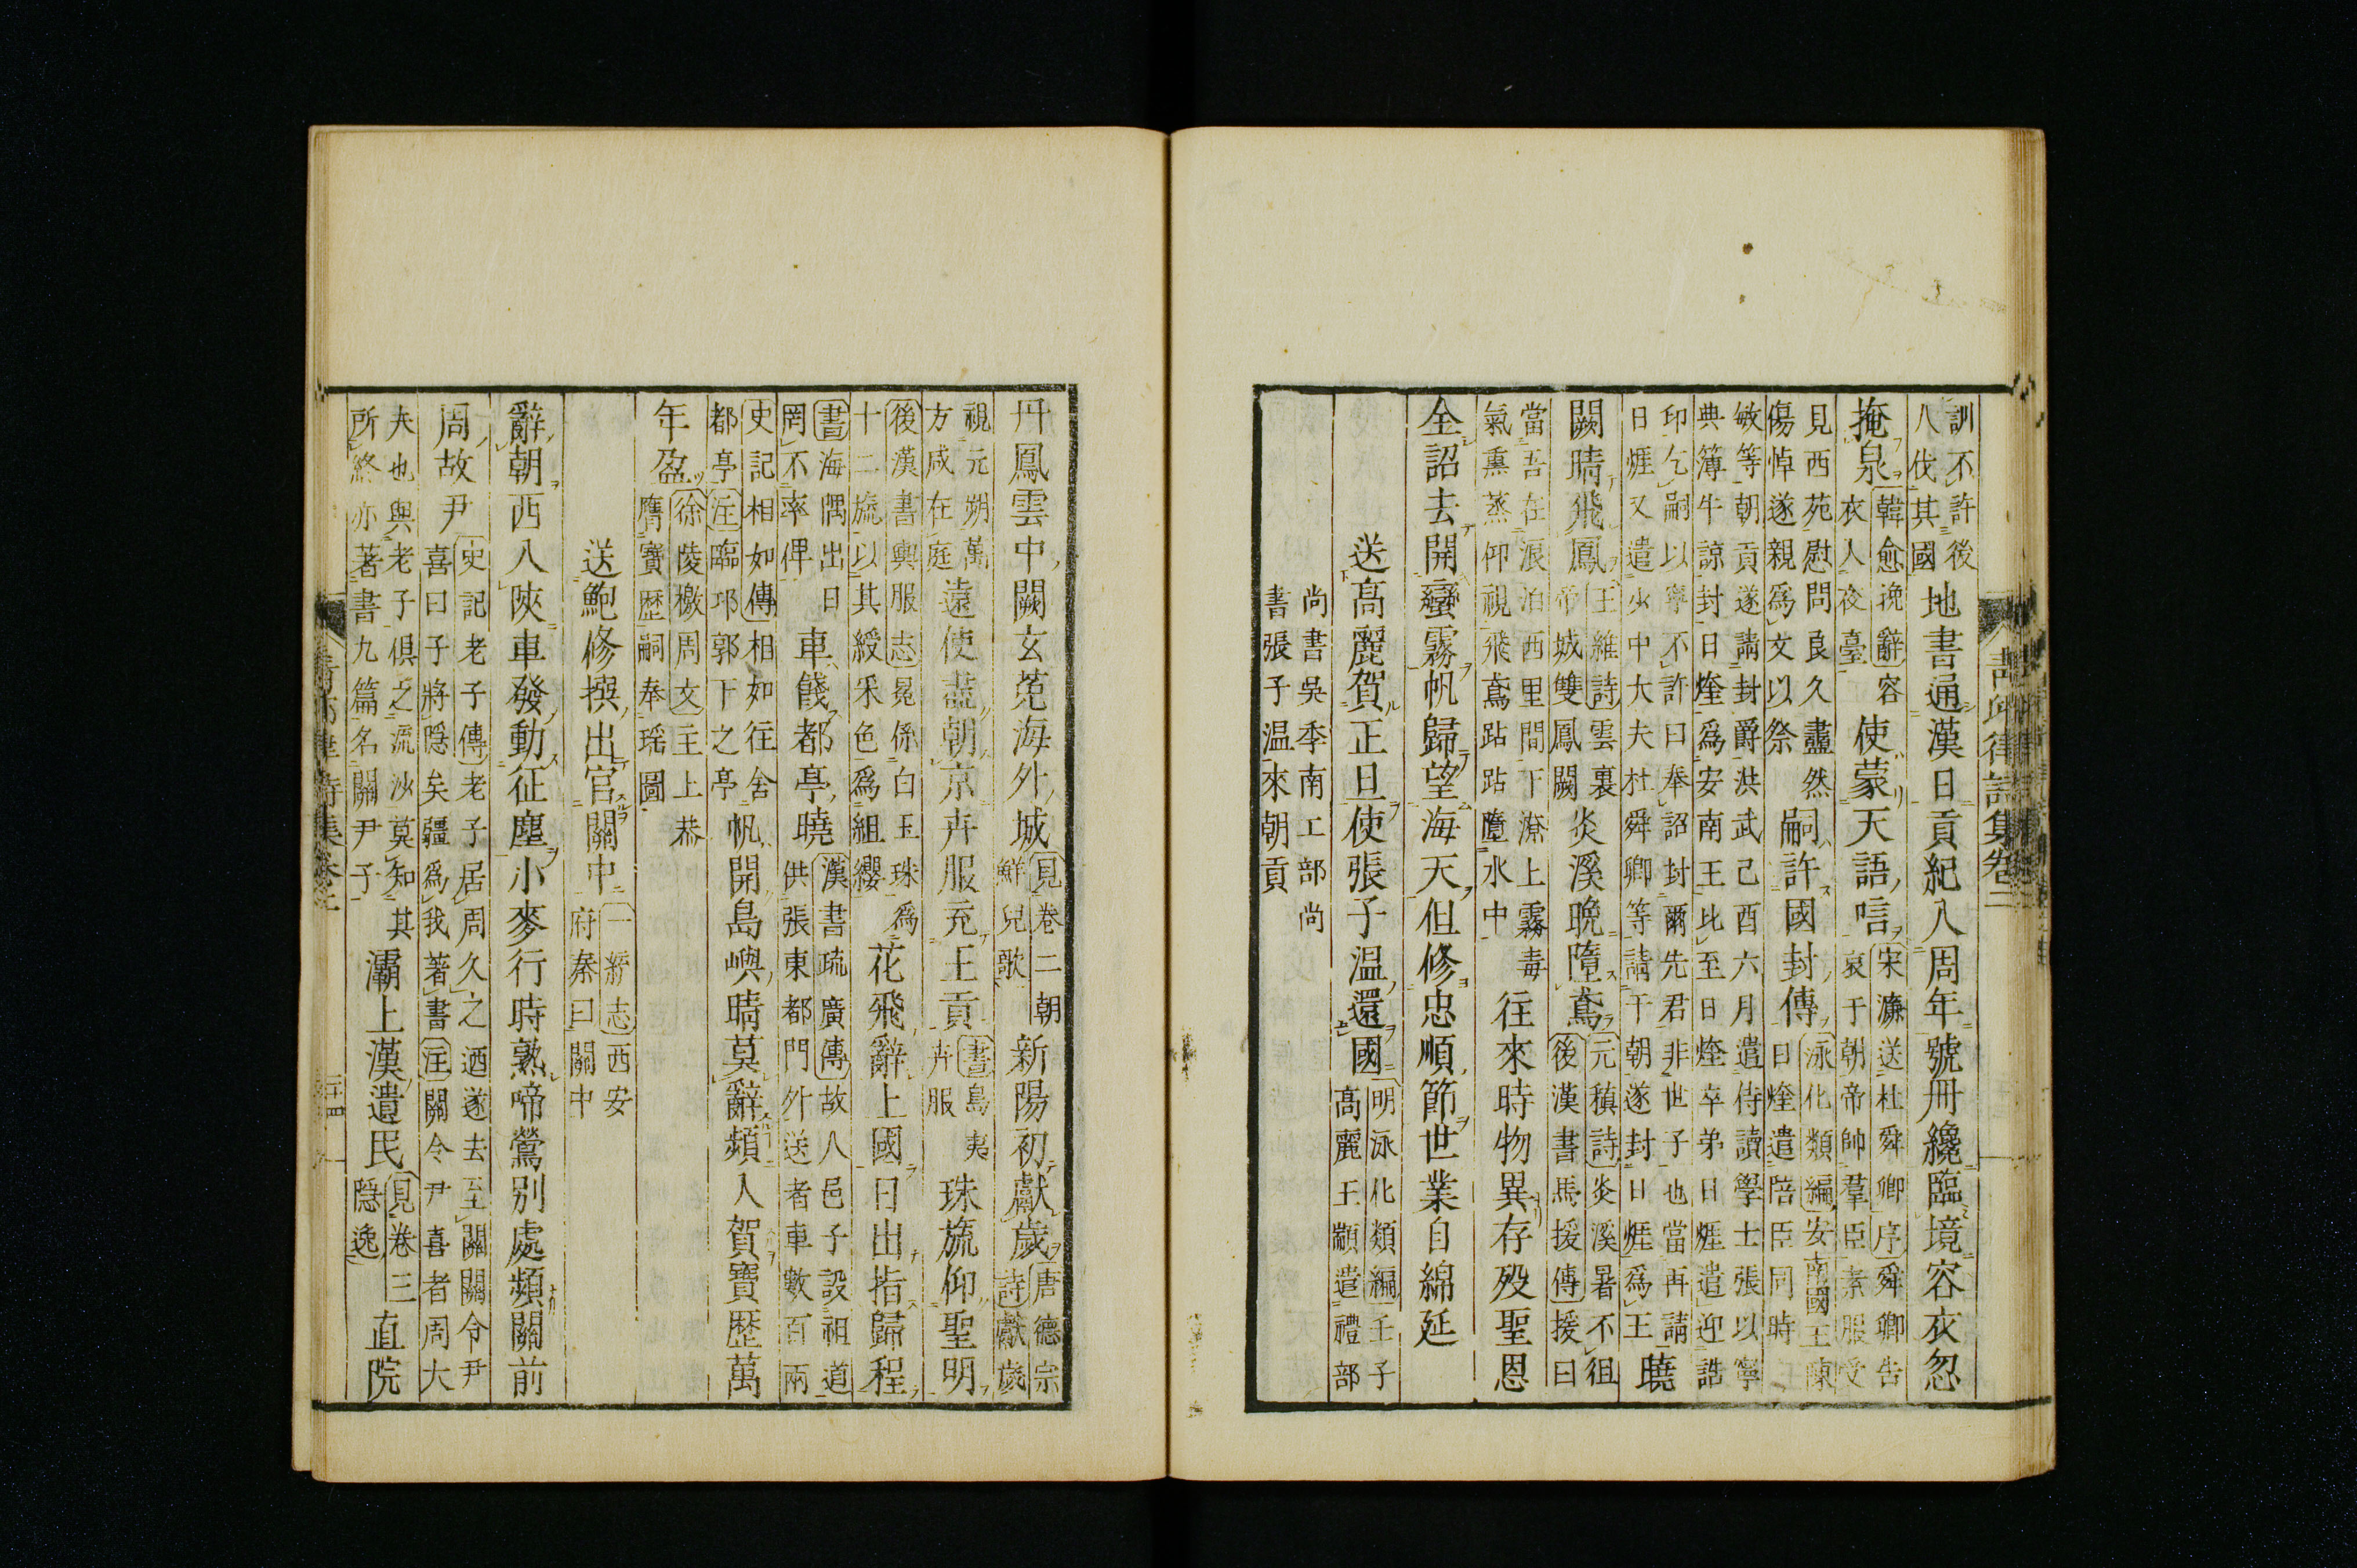 訓不許後
八伐其國
地書通漢日貢紀入周年號冊纔臨境容衣忽
掩泉
韓愈挽辭容
衣人夜臺
使蒙天語唁
宋濂送杜舜卿序舜卿告
哀于朝帝帥羣臣素服受
見西苑慰問良久盡然
傷悼遂親爲文以祭
嗣許國封傳
泳化類編安南國王陳
日煃遣陪臣同時
敏等朝貢遂請封爵洪武己酉六月遣侍讀學士張以寧
典簿牛諒封日煃爲安南王比至日煃卒弟日熞遣迎誥
印乞嗣以寧不許曰奉詔封爾先君非世子也當再請
日熞又遣少中大夫杜舜卿等請于朝遂封日熞爲王
曉
闕晴飛鳳
王維詩雲裏
帝城雙鳳闕
炎溪晩墮鳶
元稹詩炎溪暑不徂
後漢書馬援傳援曰
當吾在浪泊西里間下潦上霧毒
氣熏蒸仰視飛鳶跕跕墮水中
往來時物異存殁聖恩
全詔去開蠻霧帆歸望海天但修忠順節世業自綿延
送髙麗賀正旦使張子温還國
明泳化類編壬子
髙麗王顓遣禮部
尚書吳季南工部尚
書張子温來朝貢
丹鳳雲中闕玄菟海外城
見卷二朝
鮮兒歌
新陽初獻歲
唐德宗
詩獻歲
視元朔萬
方咸在庭
遠使盡朝京卉服充王貢
書島夷
卉服
珠旒仰聖明
後漢書輿服志冕係白玉珠爲
十二旒以其綬采色爲組纓
花飛辭上國日出指歸程
書海隅出日
罔不率俾
車餞都亭曉
漢書疏廣傳故人邑子設祖道
供張東都門外送者車數百兩
史記相如傳相如往舍
都亭注臨邛郭下之亭
帆開島嶼晴莫辭頻入賀寶歴萬
年盈
徐陵檄周文主上恭
膺寶歴嗣奉瑶圖
送鮑修撰出官關中
一綂志西安
府秦曰關中
辭朝西入陜車發動征塵小麥行時熟啼鶯別處頻關前
周故尹
史記老子傳老子居周久之迺遂去至關關令尹
喜曰子將隱矣疆爲我著書注關令尹喜者周大
夫也與老子俱之流沙莫知其
所終亦著書九篇名關尹子
灞上漢遺民
見卷三
隱逸
直院